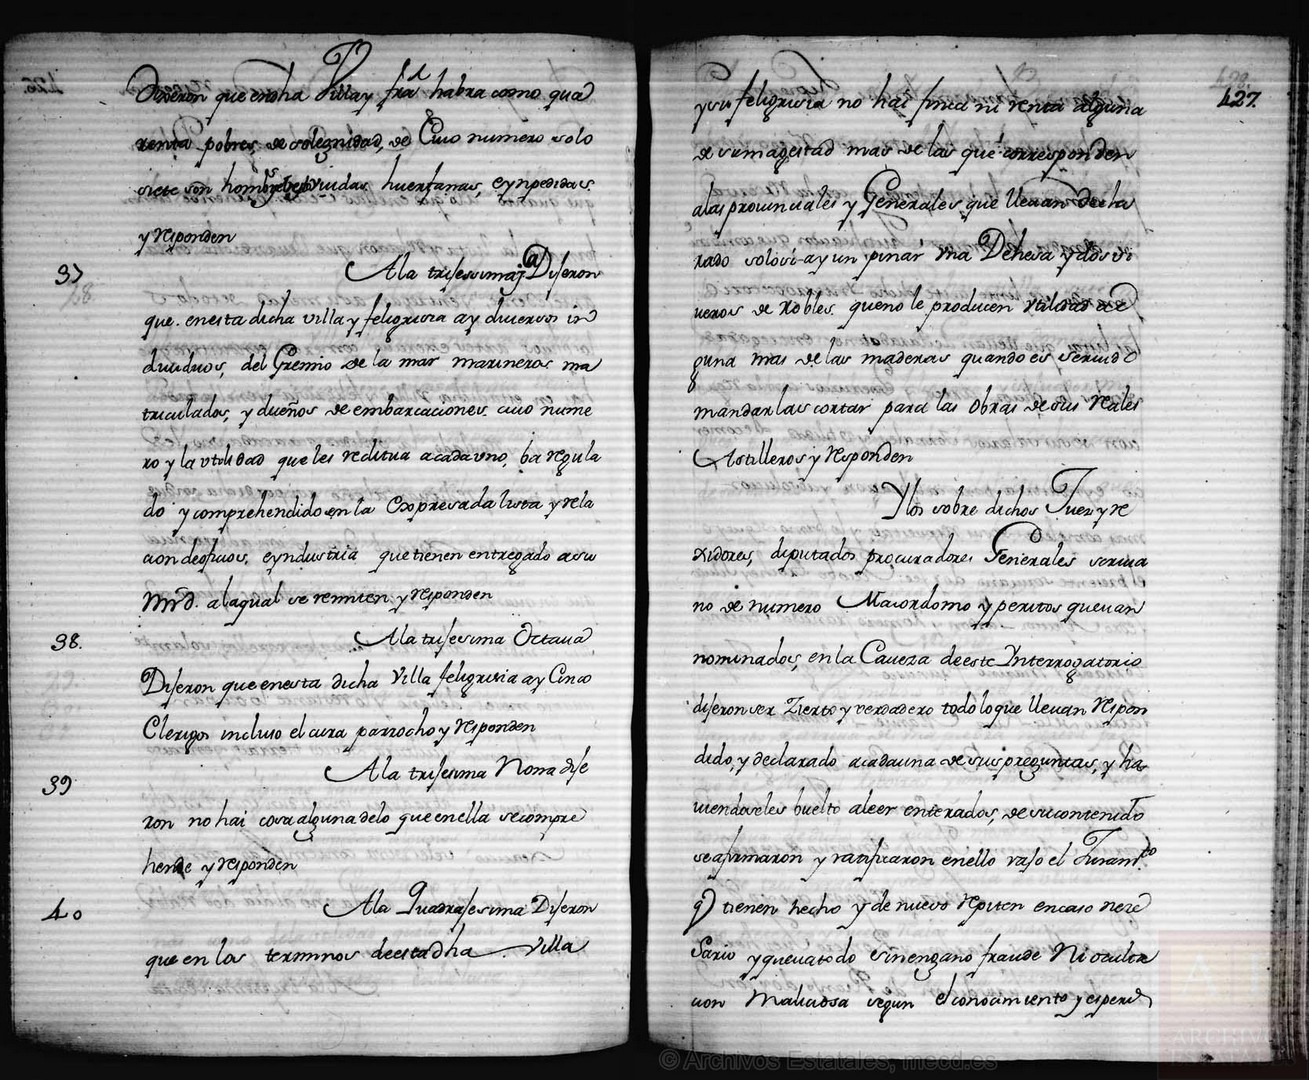 Dixeron que en dha Villa y frâ habra como qua
renta pobres de solegnidad, de Cuio numero solo
siete son hombres viudas, huerfanas, e ynpedidas
y responden
37 A la trisessima 7.a Diseron
que en esta dicha villa y feligrisia ay diversos in
dividuos, del Gremio de la mar marineros ma
triculados, y dueños de embarcaciones cuio nume
ro y la utilidad que les reditua a cada uno, ba regula
do y comprehendido en la Expresada lista y rela
cion de ofizios, e yndustria que tienen entregado a su
Mrd. a la qual se remiten y responden
38. A la trisesima Octava
Diseron que en esta dicha Villa feligrisia ay Cinco
Clerigos incluso el cura parrocho y responden
39 A la trisesima Nona dise
ron no hai cosa alguna de lo que en ella se compre
hende y responden
40 A la Quadrasesima Diseron
que en los terminos de esta dha Villa
427
y su feligrisia no hai finca ni renta alguna
de su magestad mas de las que correspônden
a las provinciales y Generales que llevan decla
rado solo si ay un pinar una Dehesa y dos vi
veros de Robles que no le producen utilidad al
guna mas de las maderas quando es servido
mandarlas cortar para las obras de sus reales
Astilleros y responden
Y los sobre dichos Juez y re
xidores, diputados procuradores Generales scriva
no de numero Maiordomo y peritos que van
nominados, en la Caveza de este Ynterrogatorio
diseron ser Zierto y verdadero todo lo que llevan respon
dido, y declarado a cada una de sus preguntas, y ha
viendoseles buelto a leer enterados, de su contenido
se afirmaron y ratificaron en ello vaso el Juramto
q tienen hecho y de nuevo repiten en caso nece
sario y que va todo sin engano fraude Ni oculta
cion Maliciosa segun el conocimiento y esperi
© Archivos Estatales, mecd.es
ARCHIVOS
ESTATALES